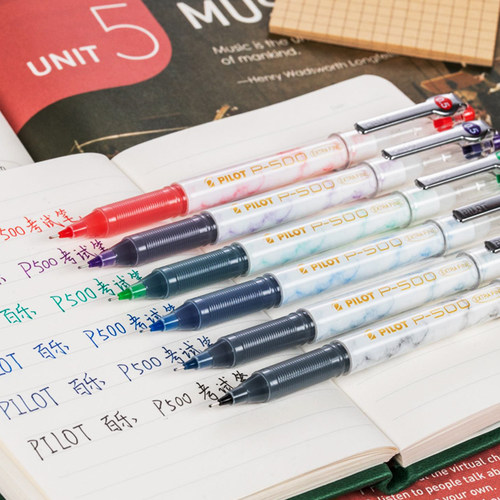 UNIT 5
MUS
Music is the un
of mankind.
—Henry Wadsworth Longfel
500 考试笔
PILOT P-500
P500 考试笔
PILOT P-500
P500 考试笔
PILOT P-500
百乐, P500 考试笔
PILOT P-500
PILOT 百乐, P500 考试笔
PILOT P-500
PILOT 百乐, P500 考试笔
PILOT P-500
PILOT 百乐, P500 考试笔
the virtual ch
listen to people talk abo